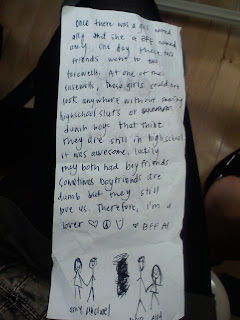 Once there was a girl named
ally and she a BFF named
amy. One day these two
friends went to two
farewells. At one of the
farewells, those girls could not
look anywhere without seeing
highschool sluts or
dumb boys that think
they are still in highschool.
it was awesome, luckily
they both had boyfriends
sometimes boyfriends are
dumb but they still
love us. Therefore, i'm a
lover ♡ ☮ U ♥ BFFA!
amy michael
ally